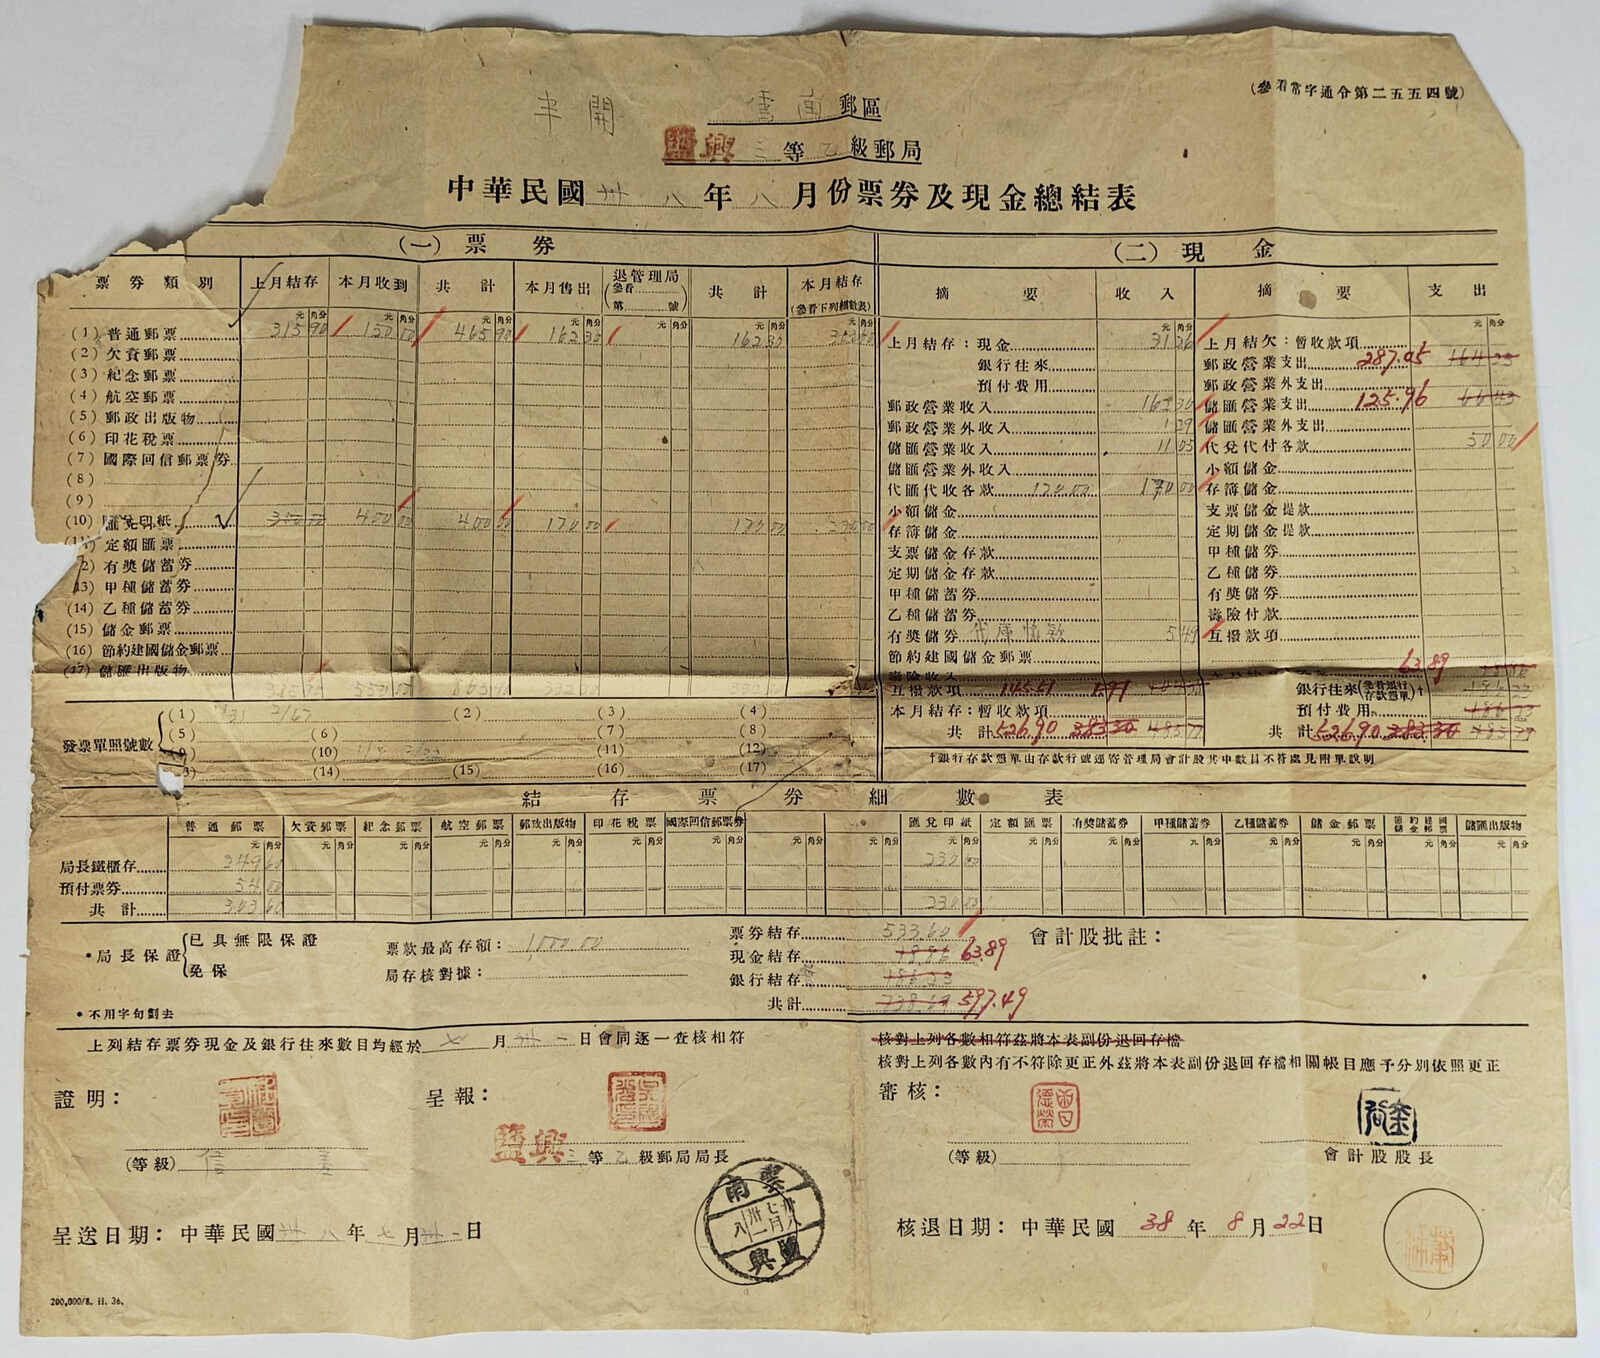 (參看常字通令第二五五四號)
半開 雲南郵區
鹽興三等乙級郵局
中華民國卅八年八月份票券及現金總結表
(一) 票券 (二) 現金
票券類別 上月結存 本月收到 共計 本月售出 退管理局(參看 第 號) 共計 本月結存(參看下列細數表) 摘要 收入 摘要 支出
(1) 普通郵票 315 90 150 00 465 90 162 30 162 30 303 60
(2) 欠資郵票
(3) 紀念郵票
(4) 航空郵票
(5) 郵政出版物
(6) 印花稅票
(7) 國際回信郵票券
(8)
(9)
(10) 匯兌印紙 400 00 400 00 170 00 170 00
(11) 定額匯票
2) 有獎儲蓄券
13) 甲種儲蓄券
(14) 乙種儲蓄券
(15) 儲金郵票
(16) 節約建國儲金郵票
(17) 儲匯出版物
上月結存：現金 31 26 上月結欠：暫收款項
銀行往來 郵政營業支出 287.05
預付費用 郵政營業外支出
郵政營業收入 162 30 儲匯營業支出 125.96
郵政營業外收入 1 29 儲匯營業外支出
儲匯營業收入 11 05 代兌代付各款 50 00
儲匯營業外收入 小額儲金
代匯代收各款 170.00 170 00 存簿儲金
小額儲金 支票儲金提款
存簿儲金 定期儲金提款
支票儲金存款 甲種儲券
定期儲金存款 乙種儲券
甲種儲蓄券 有獎儲券
乙種儲蓄券 壽險付款
有獎儲券 5 49 互撥款項
節約建國儲金郵票
壽險收入 63.89
互撥款項 145.51 銀行往來(參看銀行存款憑單)†
本月結存：暫收款項 預付費用
共計 526.90 383 30 共計 526.90 383 30
†銀行存款憑單由存款行號逕寄管理局會計股其中數目不符處見附單說明
發票單照號數
(1) (2) (3) (4)
(5) (6) (7) (8)
(9) (10) (11) (12)
3) (14) (15) (16) (17)
結存票券細數表
普通郵票 欠資郵票 紀念郵票 航空郵票 郵政出版物 印花稅票 國際回信郵票券 匯兌印紙 定額匯票 有獎儲蓄券 甲種儲蓄券 乙種儲蓄券 儲金郵票 節約建國儲金郵票 儲匯出版物
局長鐵櫃存 249 60 230 00
預付票券 54 00
共計 303 60 230 00
*局長保證 已具無限保證 免保
票款最高存額： 1000 00
局存核對據：
票券結存 533.60
現金結存 18.96 63.89
銀行結存
共計 597.49
會計股批註：
*不用字句劃去
上列結存票券現金及銀行往來數目均經於七月卅一日會同逐一查核相符
核對上列各數相符茲將本表副份退回存檔
核對上列各數內有不符除更正外茲將本表副份退回存檔相關帳目應予分別依照更正
證明： 呈報： 審核：
(等級) 信差 鹽興三等乙級郵局局長 (等級) 會計股股長
雲南 卅八 七月 卅一 八 鹽興
呈送日期：中華民國卅八年七月卅一日
核退日期：中華民國38年8月22日
200,000/8. H. 36.